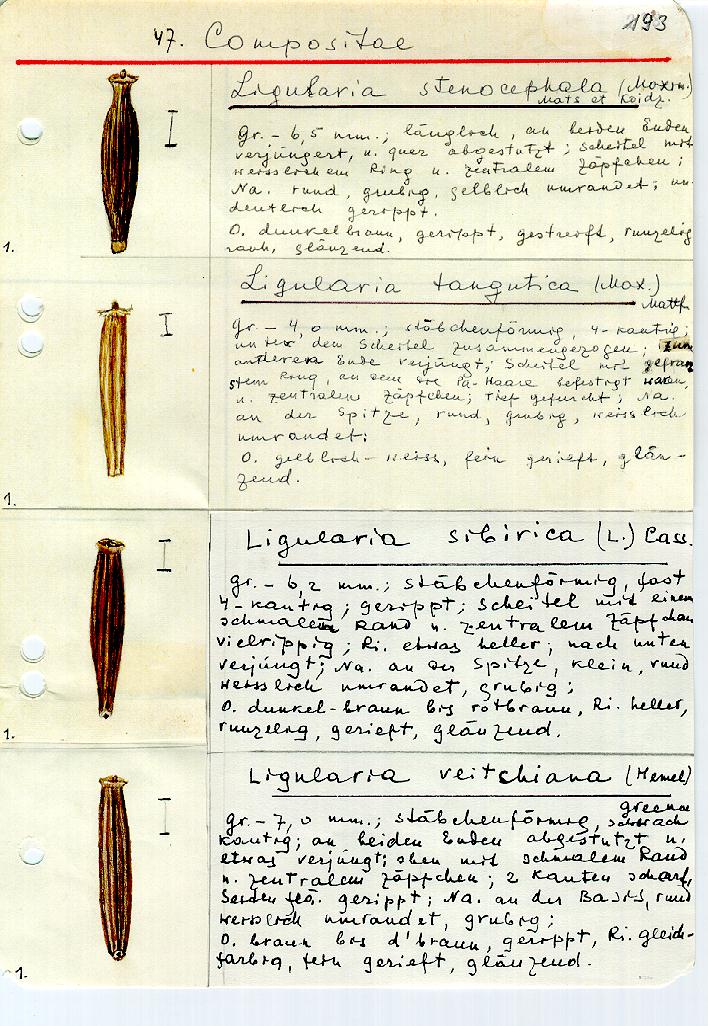 193
47. Compositae
Ligularia stenocephala (Maxim.)
Mats et Koidz.
Gr.- 6,5 mm.; länglich, an beiden Enden
verjüngert, u. quer abgestutzt; Scheitel mit
weisslichem Ring u. zentralem Zäpfchen;
Na. rund, grubig, gelblich umrandet; un-
deutlich gerippt.
O. dunkelbraun, gerippt, gestreift, runzelig
rauh, glänzend.
1.
Ligularia tangutica (Max.)
Mattf.
Gr. - 4,0 mm.; stäbchenförmig, 4-kantig;
unter dem Scheitel zusammengezogen; zum
anderen Ende verjüngt; Scheitel mit gefran
stem Ring, an dem die Pa-Haare befestigt waren,
u. zentralen Zäpfchen; tief gefurcht; Na.
an der Spitze, rund, grubig, weisslich
umrandet;
O. gelblich-weiss, fein gerieft, glän-
zend.
1.
Ligularia sibirica (L.) Cass.
Gr. - 6,2 mm.; stäbchenförmig, fast
4-kantig; gerippt; Scheitel mit einem
schmalem Rand u. zentralem Zäpfchen
vielrippig; Ri. etwas heller; nach unten
verjüngt; Na. an der Spitze, klein, rund
weisslich umrandet, grubig;
O. dunkel-braun bis rotbraun, Ri. heller,
runzelig, gerieft, glänzend.
1.
Ligularia veitchiana (Hemsl)
Greenm
Gr. - 7,0 mm.; stäbchenförmig, schwach
kantig; an beiden Enden abgestutzt u.
etwas verjüngt; oben mit schmalem Rand
u. zentralem Zäpfchen; 2 Kanten scharf,
Seiten gerippt; Na. an der Basis, rund
weisslich umrandet, grubig;
O. braun bis d'braun, gerippt, Ri. gleich-
farbig, fein gerieft, glänzend.
1.